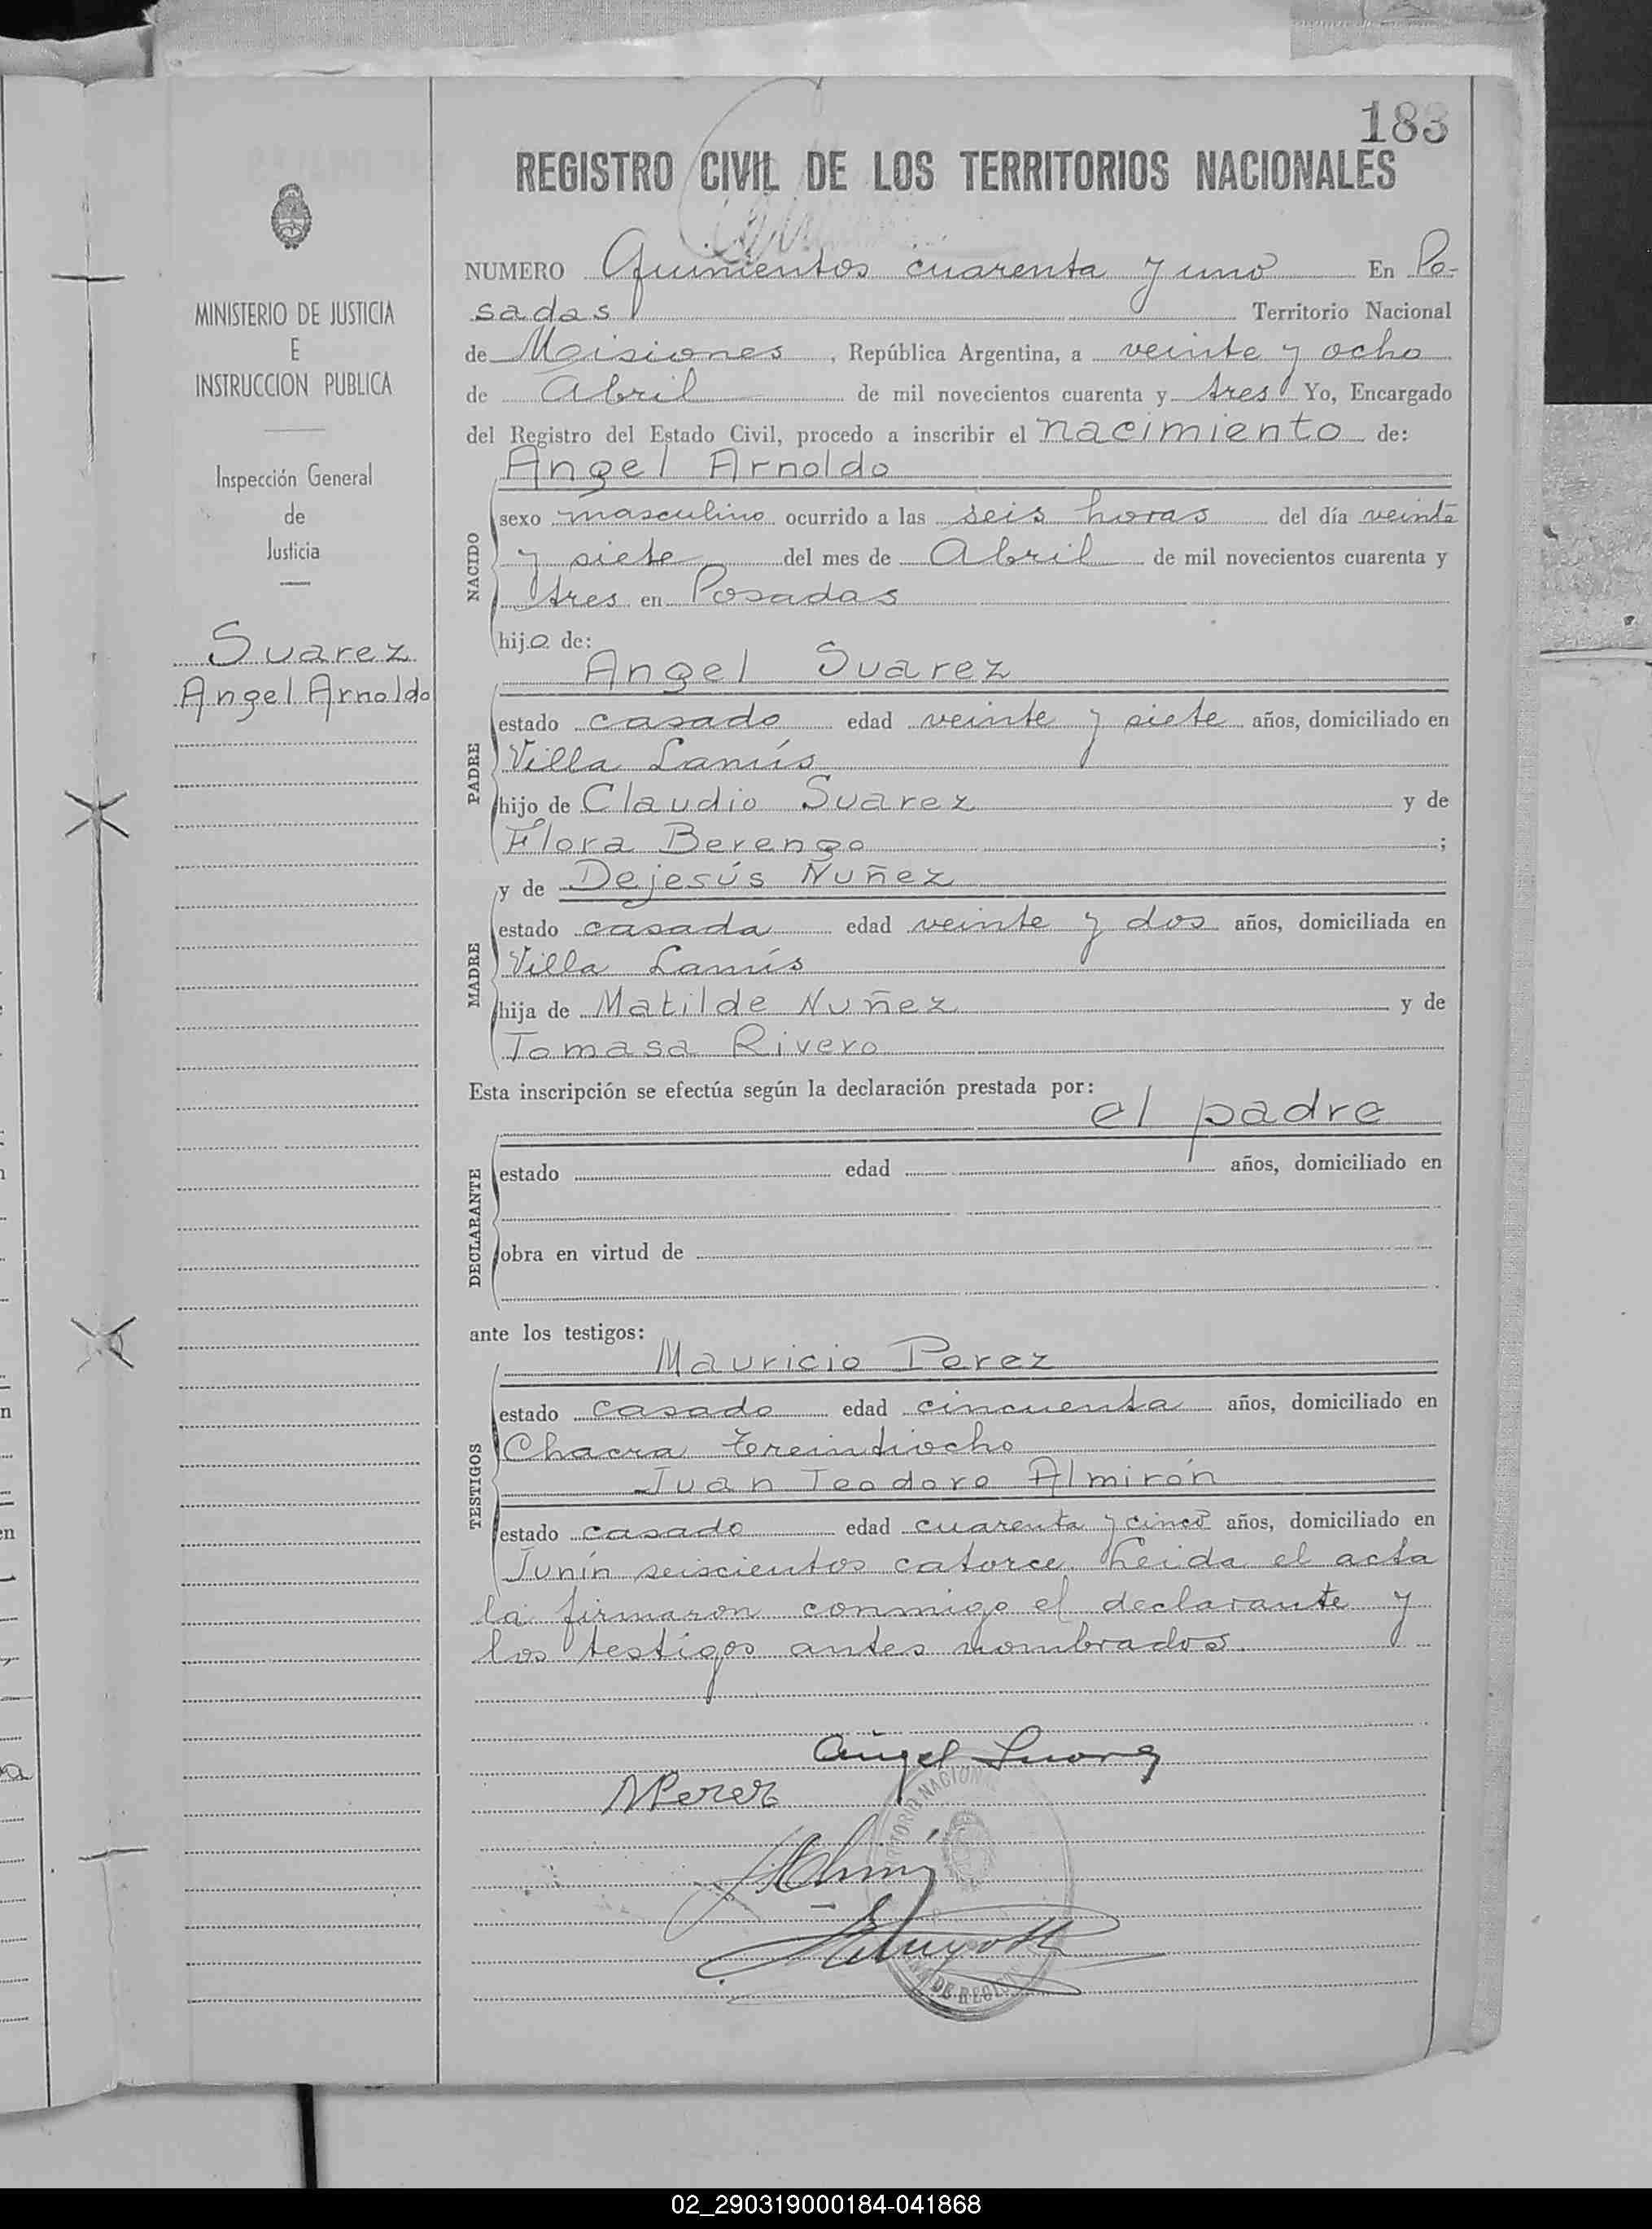 183
REGISTRO CIVIL DE LOS TERRITORIOS NACIONALES
MINISTERIO DE JUSTICIA
E
INSTRUCCION PUBLICA
Inspección General
de
Justicia
Suarez
Angel Arnoldo
NUMERO Quinientos cuarenta y uno En Po-
sadas Territorio Nacional
de Misiones, República Argentina, a veinte y ocho
de Abril de mil novecientos cuarenta y tres Yo, Encargado
del Registro del Estado Civil, procedo a inscribir el nacimiento de:
Angel Arnoldo
NACIDO
sexo masculino ocurrido a las seis horas del día veinte
y siete del mes de Abril de mil novecientos cuarenta y
tres en Posadas
hijo de:
Angel Suarez
PADRE
estado casado edad veinte y siete años, domiciliado en
Villa Lanús
hijo de Claudio Suarez y de
Flora Berengo;
y de Dejesús Nuñez
MADRE
estado casada edad veinte y dos años, domiciliada en
Villa Lanús
hija de Matilde Nuñez y de
Tomasa Rivero
Esta inscripción se efectúa según la declaración prestada por:
el padre
DECLARANTE
estado edad años, domiciliado en
obra en virtud de
ante los testigos:
Mauricio Perez
TESTIGOS
estado casado edad cincuenta años, domiciliado en
Chacra treintiocho
Juan Teodoro Almirón
estado casado edad cuarenta y cinco años, domiciliado en
Junín seiscientos catorce. Leida el acta
la firmaron conmigo el declarante y
los testigos antes nombrados.
Angel Suarez
MPerez
02_290319000184-041868